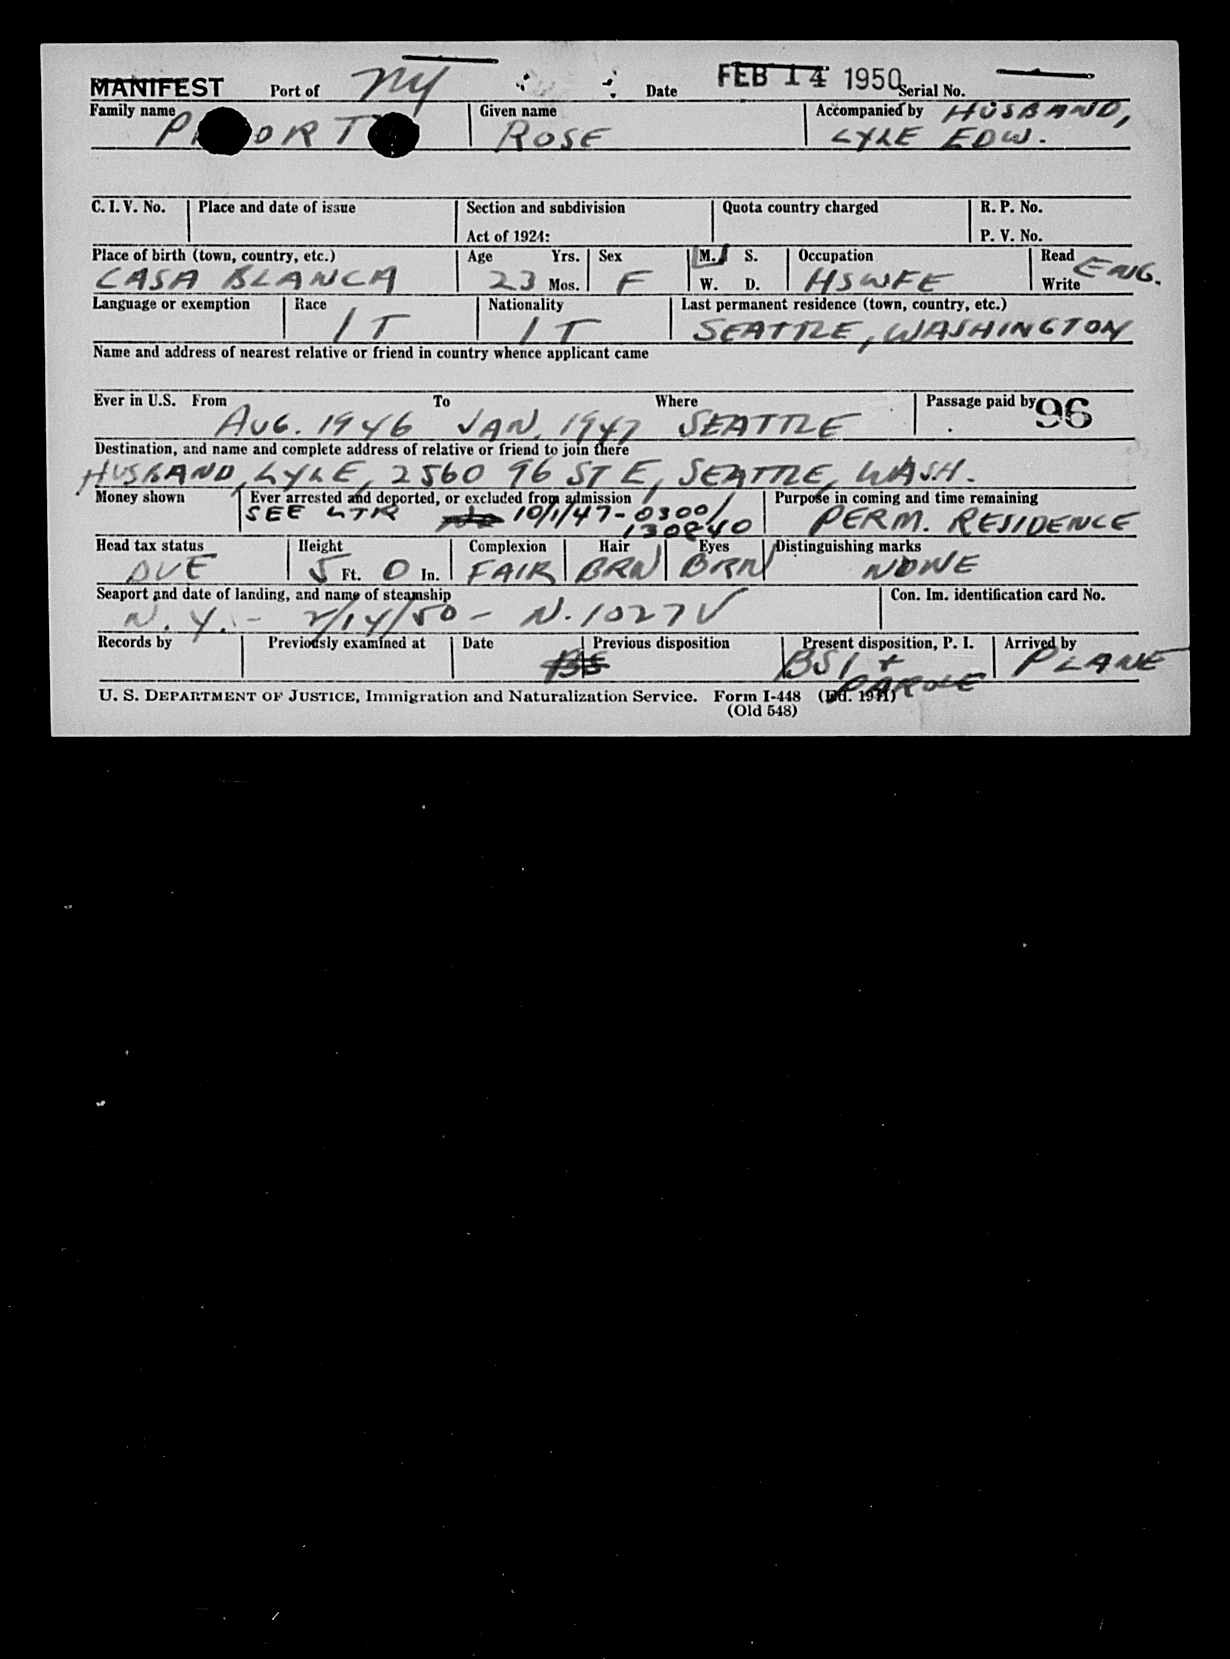 MANIFEST Port of NY Date FEB 14 1950 Serial No.
Family name Given name Accompanied by HUSBAND,
ORT ROSE LYLE EDW.
C. I. V. No. Place and date of issue Section and subdivision Quota country charged R. P. No.
Act of 1924: P. V. No.
Place of birth (town, country, etc.) Age Yrs. Sex M. S. Occupation Read ENG.
CASA BLANCA 23 Mos. F W. D. HSWFE Write
Language or exemption Race Nationality Last permanent residence (town, country, etc.)
IT IT SEATTLE, WASHINGTON
Name and address of nearest relative or friend in country whence applicant came
Ever in U.S. From To Where Passage paid by 96
AUG. 1946 JAN. 1947 SEATTLE
Destination, and name and complete address of relative or friend to join there
HUSBAND, LYLE, 2560 96 ST E, SEATTLE, WASH.
Money shown Ever arrested and deported, or excluded from admission Purpose in coming and time remaining
SEE LTR 10/1/47-0300/ PERM. RESIDENCE
Head tax status Height Complexion Hair Eyes Distinguishing marks
DUE 5 Ft. 0 In. FAIR BRN BRN NONE
Seaport and date of landing, and name of steamship Con. Im. identification card No.
N. Y. - 2/14/50 - N. 1027V
Records by Previously examined at Date Previous disposition Present disposition, P. I. Arrived by
BSI + PLANE
PAROLE
U. S. DEPARTMENT OF JUSTICE, Immigration and Naturalization Service. Form I-448 (Ed. 1941)
(Old 548)